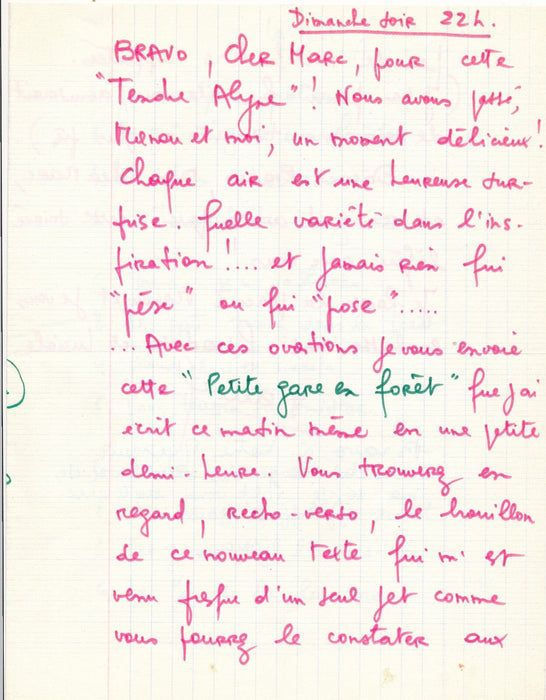 Dimanche soir 22h.
BRAVO, cher Marc, pour cette
"Tendre Alyne"! Nous avons passé,
Menou et moi, un moment délicieux!
Chaque air est une heureuse sur-
prise. Quelle variété dans l'ins-
piration!.... et jamais rien qui
"pèse" ou qui "pose".....
... Avec ces ovations je vous envoie
cette "Petite gare en forêt" que j'ai
écrit ce matin même en une petite
demi-heure. Vous trouverez en
regard, recto-verso, le brouillon
de ce nouveau texte qui m'est
venu presque d'un seul jet comme
vous pourrez le constater aux